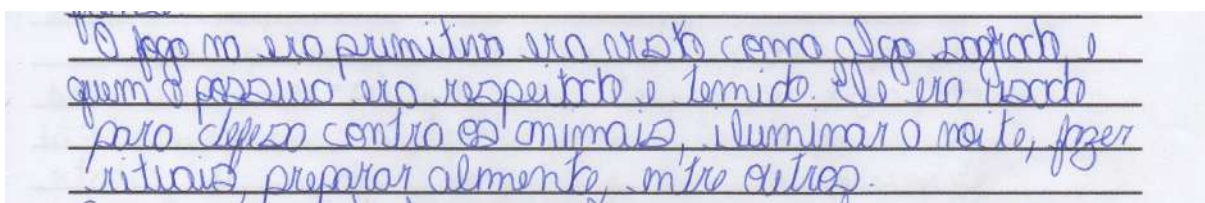 O fogo na era primitiva era visto como algo sagrado e
quem o possuia era respeitado e temido. Ele era usado
para defesa contra os animais, iluminar a noite, fazer
rituais, preparar almento, entre outros.